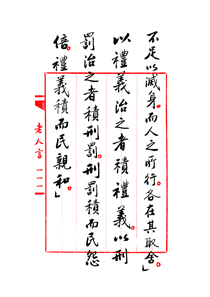 不足以滅身。而人之所行。各在其取舍」
以禮義治之者積禮義。以刑
罰治之者積刑罰。刑罰積而民怨
倍。禮義積而民親和。」
老人言